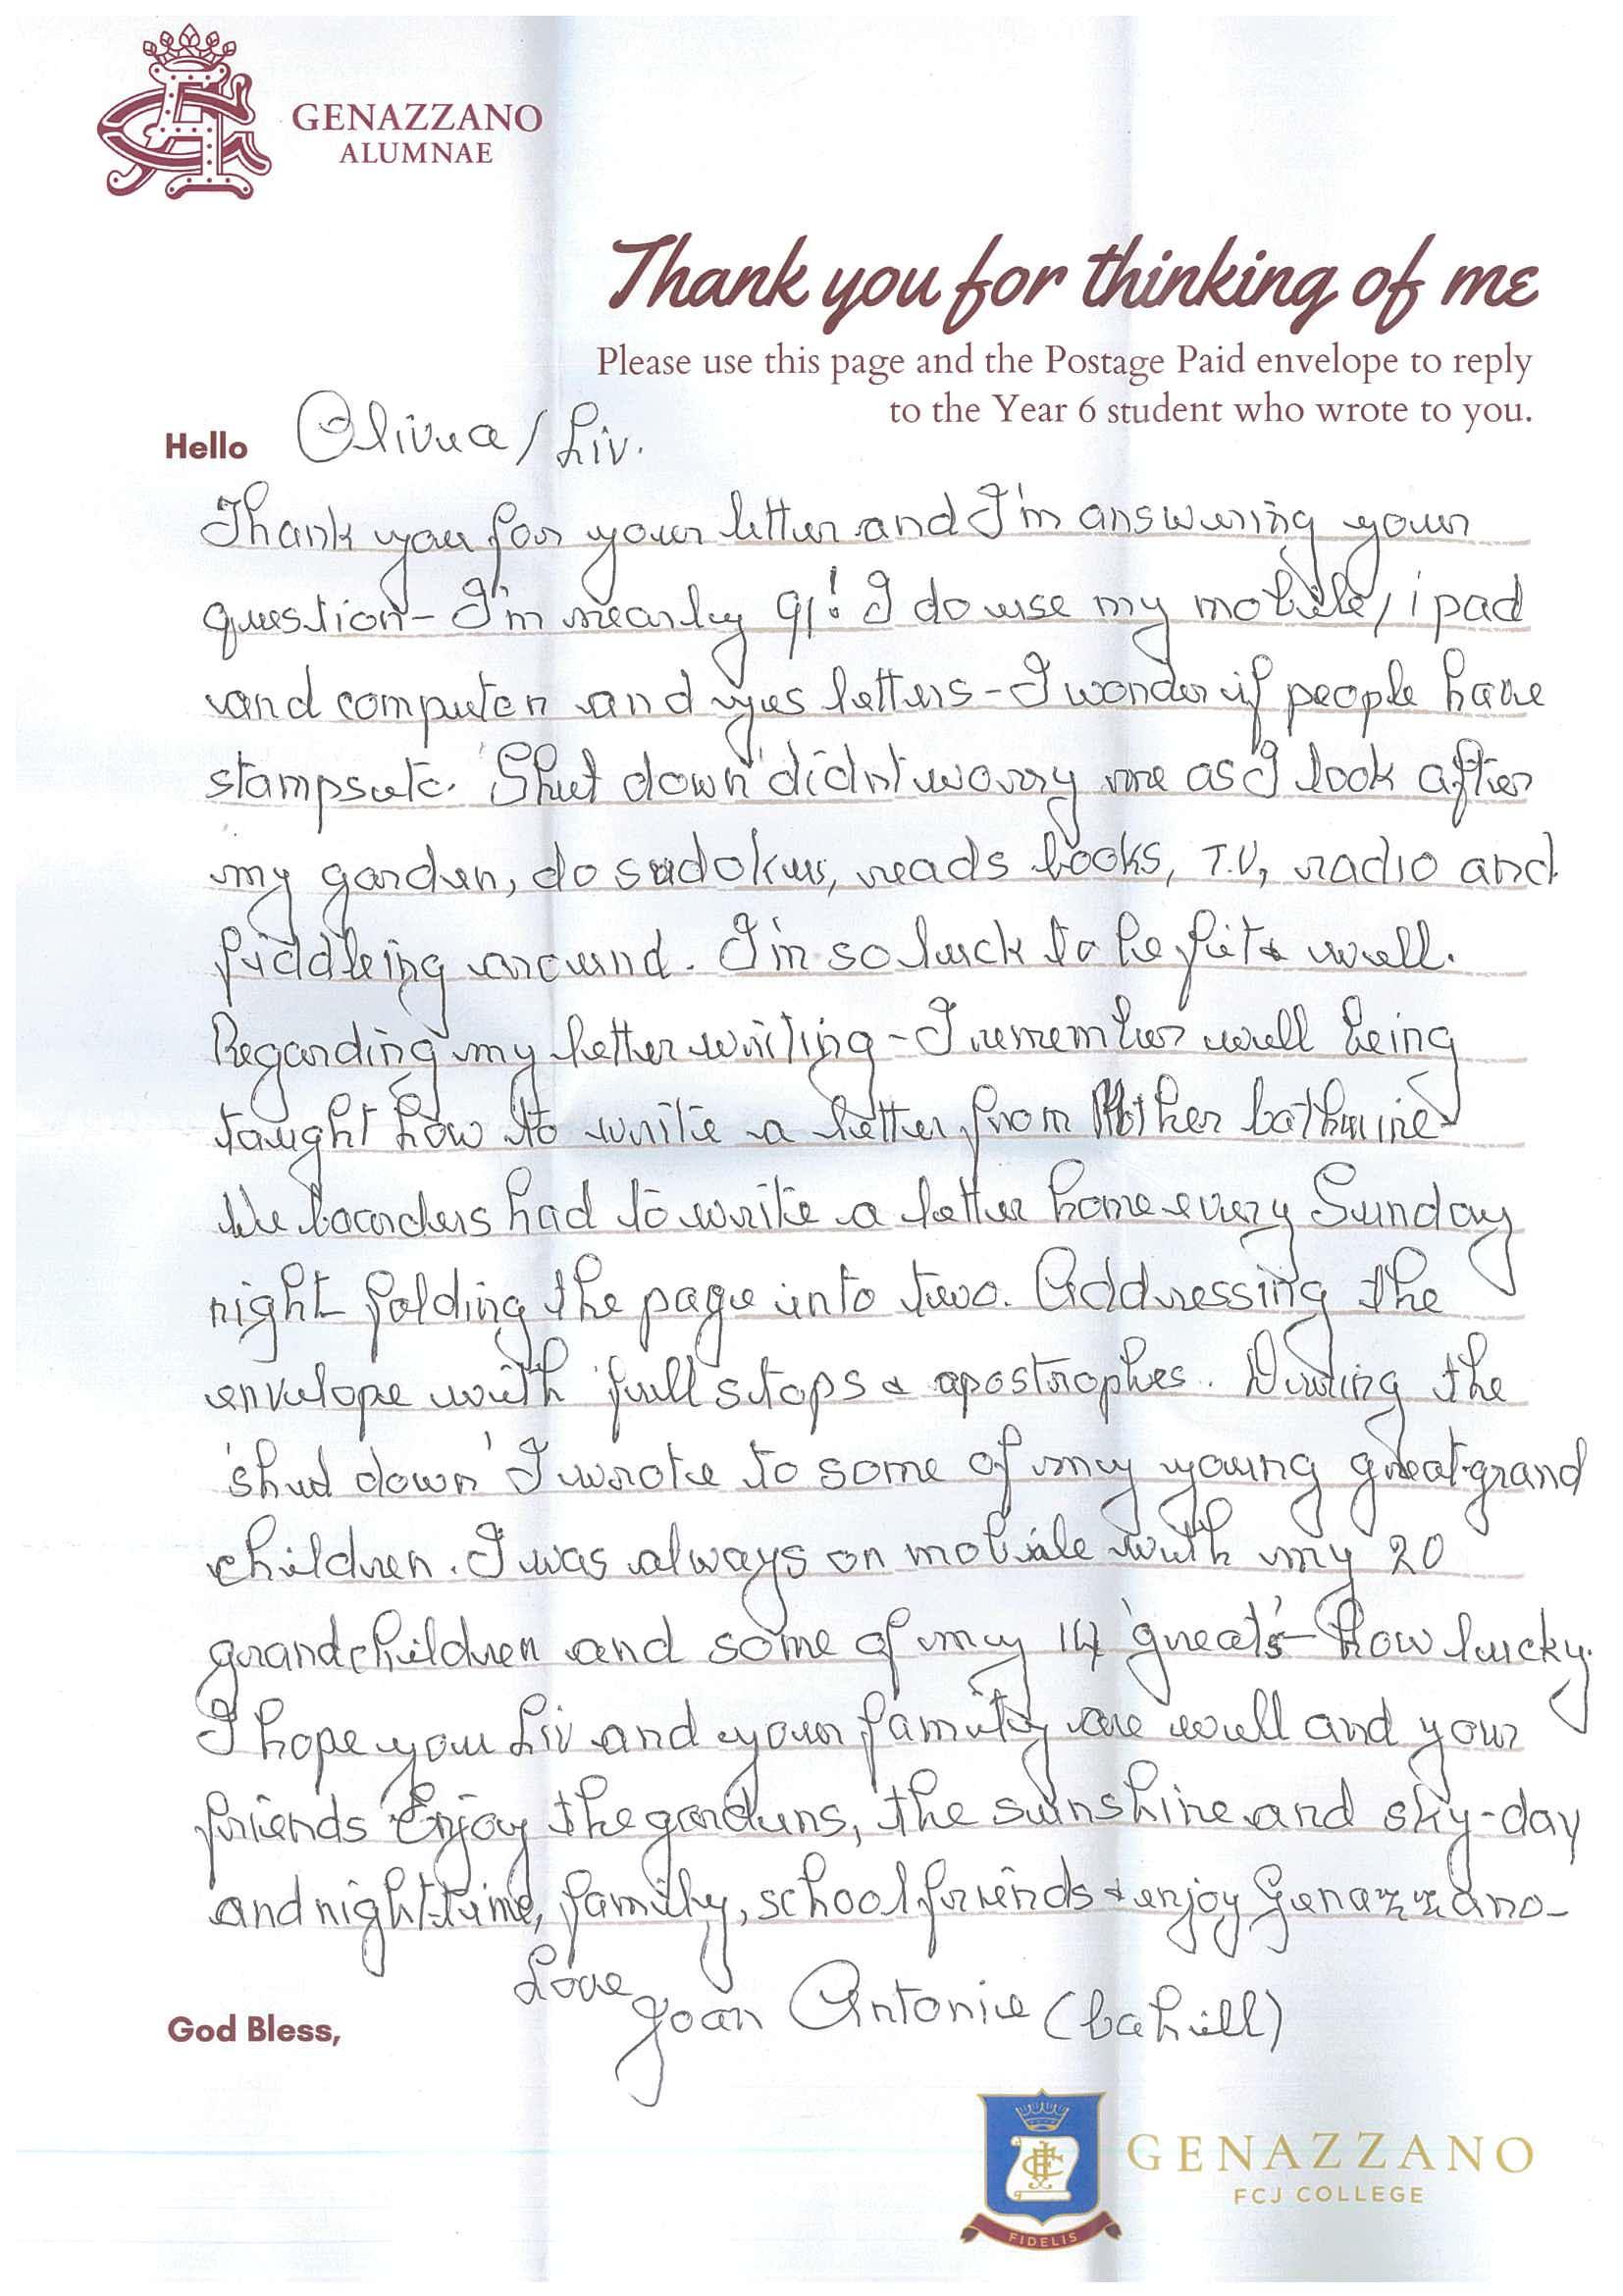 GENAZZANO
ALUMNAE
Thank you for thinking of me
Please use this page and the Postage Paid envelope to reply
to the Year 6 student who wrote to you.
Hello Olivia / Liv.
Thank you for your letter and I'm answering your
question - I'm nearly 91! I do use my mobile / ipad
and computer and yes letters - I wonder if people have
stamps etc. 'Shut down' didnt worry me as I look after
my garden, do sudokus, reads books, T.V, radio and
fiddleing around. I'm so luck to be fit & well.
Regarding my letter writing - I remember well being
taught how to write a letter from Mother Cathmine
We boarders had to write a letter home every Sunday
night folding the page into two. Addressing the
envelope with full stops & apostrophes. During the
'shud down' I wrote to some of my young great-grand
children. I was always on mobile with my 20
grandchildren and some of my 14 'greats' - how lucky.
I hope you Liv and your family are well and your
friends Enjoy the gardens, the sunshine and sky - day
and night-time, family, school friends & enjoy Genazzano -
Love
God Bless, Joan Antonie (Cahill)
GENAZZANO
FCJ COLLEGE
FIDELIS